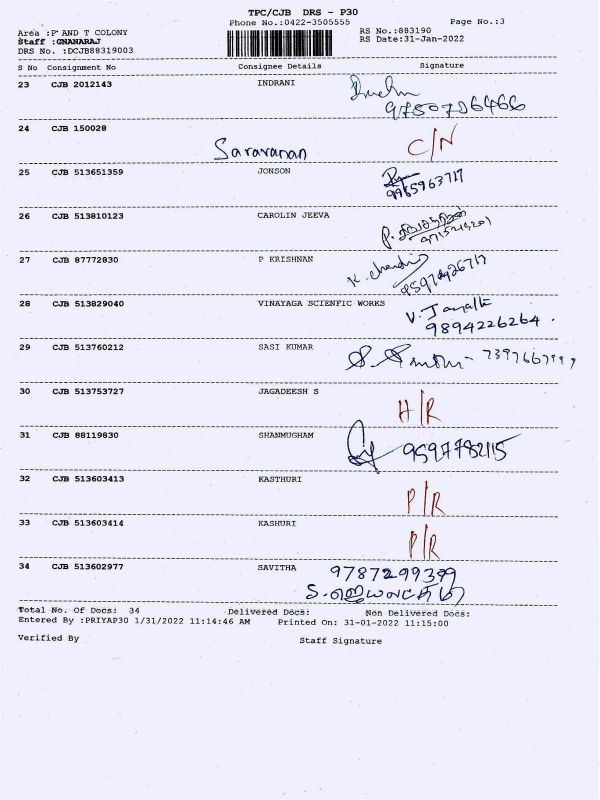 TPC/CJB DRS - P30
Phone No.:0422-3505555
Page No.:3
Area :P AND T COLONY
RS No.:883190
Staff :GNANARAJ
RS Date:31-Jan-2022
DRS No. :DCJB88319003
S No Consignment No Consignee Details Signature
23 CJB 2012143 INDRANI
24 CJB 150028
Saravanan C/N
25 CJB 513651359 JONSON
9965963717
26 CJB 513810123 CAROLIN JEEVA
27 CJB 87772830 P KRISHNAN
28 CJB 513829040 VINAYAGA SCIENFIC WORKS
9894226264.
29 CJB 513760212 SASI KUMAR
30 CJB 513753727 JAGADEESH S
H/R
31 CJB 88119830 SHANMUGHAM
9597782115
32 CJB 513603413 KASTHURI
P/R
33 CJB 513603414 KASHURI
P/R
34 CJB 513602977 SAVITHA
9787299399
Total No. Of Docs: 34 Delivered Docs: Non Delivered Docs:
Entered By :PRIYAP30 1/31/2022 11:14:46 AM Printed On: 31-01-2022 11:15:00
Verified By Staff Signature